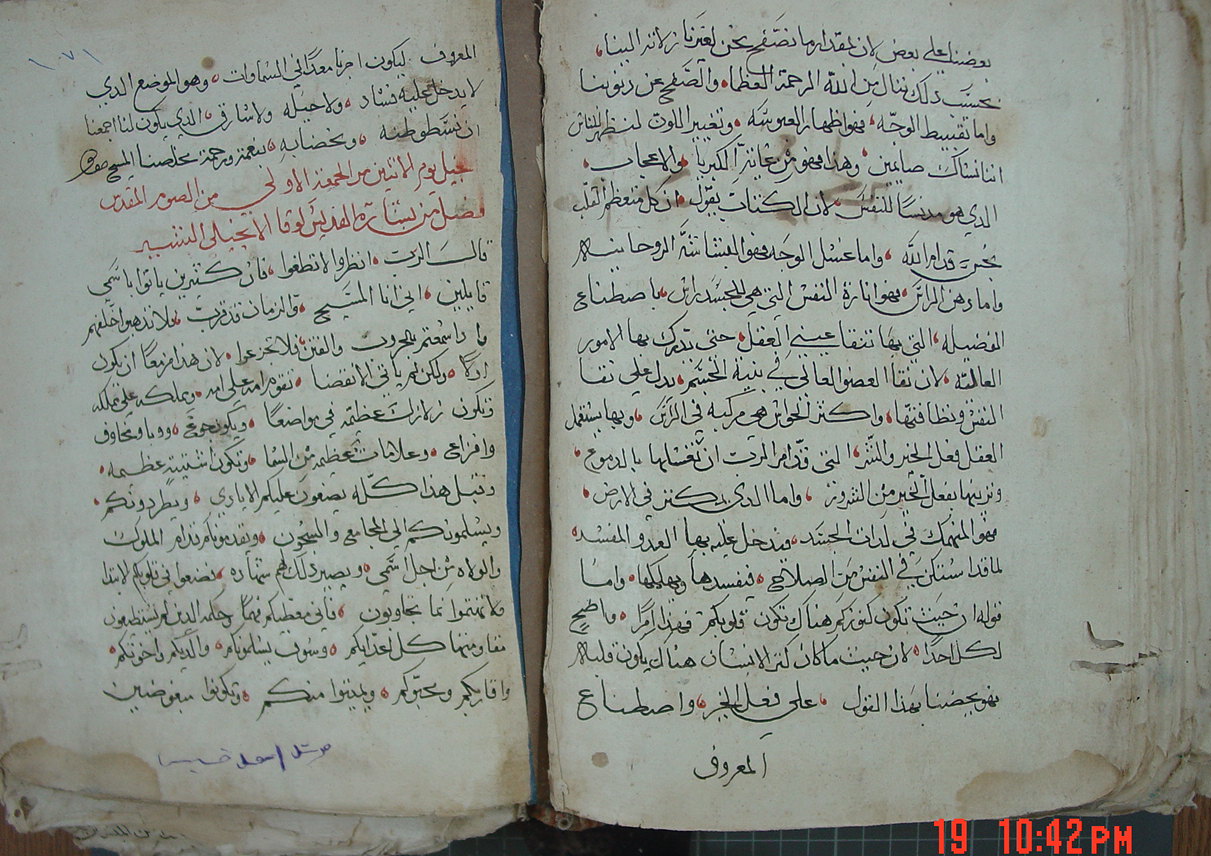 بعضنا على بعض لان بمقدار ما نصفح نحن لغيرنا زلاته الينا
بحسب ذلك ننال من الله الرحمة العظما والصفح عن ذنوبنا
واما تقبيط الوجه فهو اظهار العبوسة وتغيير اللون لنظهر للناس
اننا نساك صايمين وهذا فهو من الكبريا والاعجاب
الدي هو مدنسا للنفس لان الكتاب يقول ان كل متعظم القلب
قدام الله واما غسل الوجه فهو البشاشه الروحانيه
واما دهن الراس فهو انارة النفس التي هي للجسد راس باصطناع
الفضيله التي بها تنقا عيني العقل حتى تدرك بها الامور
العاليه لان نقا العضو العالي في بنية الجسم يدل على نقا
النفس ونظافتها واكثر الحواس هي مركبه في الراس وبها يستعمل
العقل فعل الخير والشر التي قد امر الرب ان تغسلها بالدموع
ونزينها بفعل الخير من الشرور واما الدي يكنز في الارض
فهو المنهمك في لدات الجسد فيدخل عليه بها العدو المفسد
لما قد استكن في النفس من الصلاح فيفسدها ويهلكها واما
قوله ان حيث تكون كنوزكم هناك تكون قلوبكم فهذا امرا واضح
لكل احد لان حيث ما كان كنز الانسان هناك يكون قلبه
فهو يحضنا بهذا القول على فعل الخير واصطناع
المعروف
١٧١
المعروف ليكون اجرنا معدا في السماوات وهو الموضع الدي
لا يدخل عليه فساد ولا حيله ولا سارق الدي يكون لنا اجمعنا
ان نستوطنه ونحضا به بنعمة ورحمة مخلصنا المسيح
نجيل يوم الاثنين من الجمعة الاولى من الصوم المقدس
فصل من بشارة القديس لوقا الانجيلي البشير
قال الرب انظروا لا تطغوا فان كثيرين ياتوا باسمي
قايلين اني انا المسيح والزمان قد قرب فلا تدهبوا خلفهم
فادا سمعتم بالحروب والفتن فلا تجزعوا لان هدا مزمعا ان يكون
اولا ولكن لم ياتي الانقضا تقوم امه على امه ومملكه على مملكه
وتكون زلازل عظيمه في مواضعا ويكون جوع ووبا ومخاوف
وافزاع وعلامات عظيمه من السما وتكون اشتية عظيمه
وقبل هدا كله يضعون عليكم الايادي ويطردونكم
ويسلمونكم الي المجامع والسجون ويقدمونكم قدام الملوك
والولاه من اجل اسمي ويصير دلك لهم شهاده فضعوا في قلوبكم لانكم لا
تهتموا بما تجاوبون فاني معطيكم فهما وحكمه الدين لم يستطيعون
مقاومتها كل اعدايكم وسوف يسلمونكم والديكم واخوتكم
واقاربكم ومحبيكم ويميتوا منكم وتكونوا مبغوضين